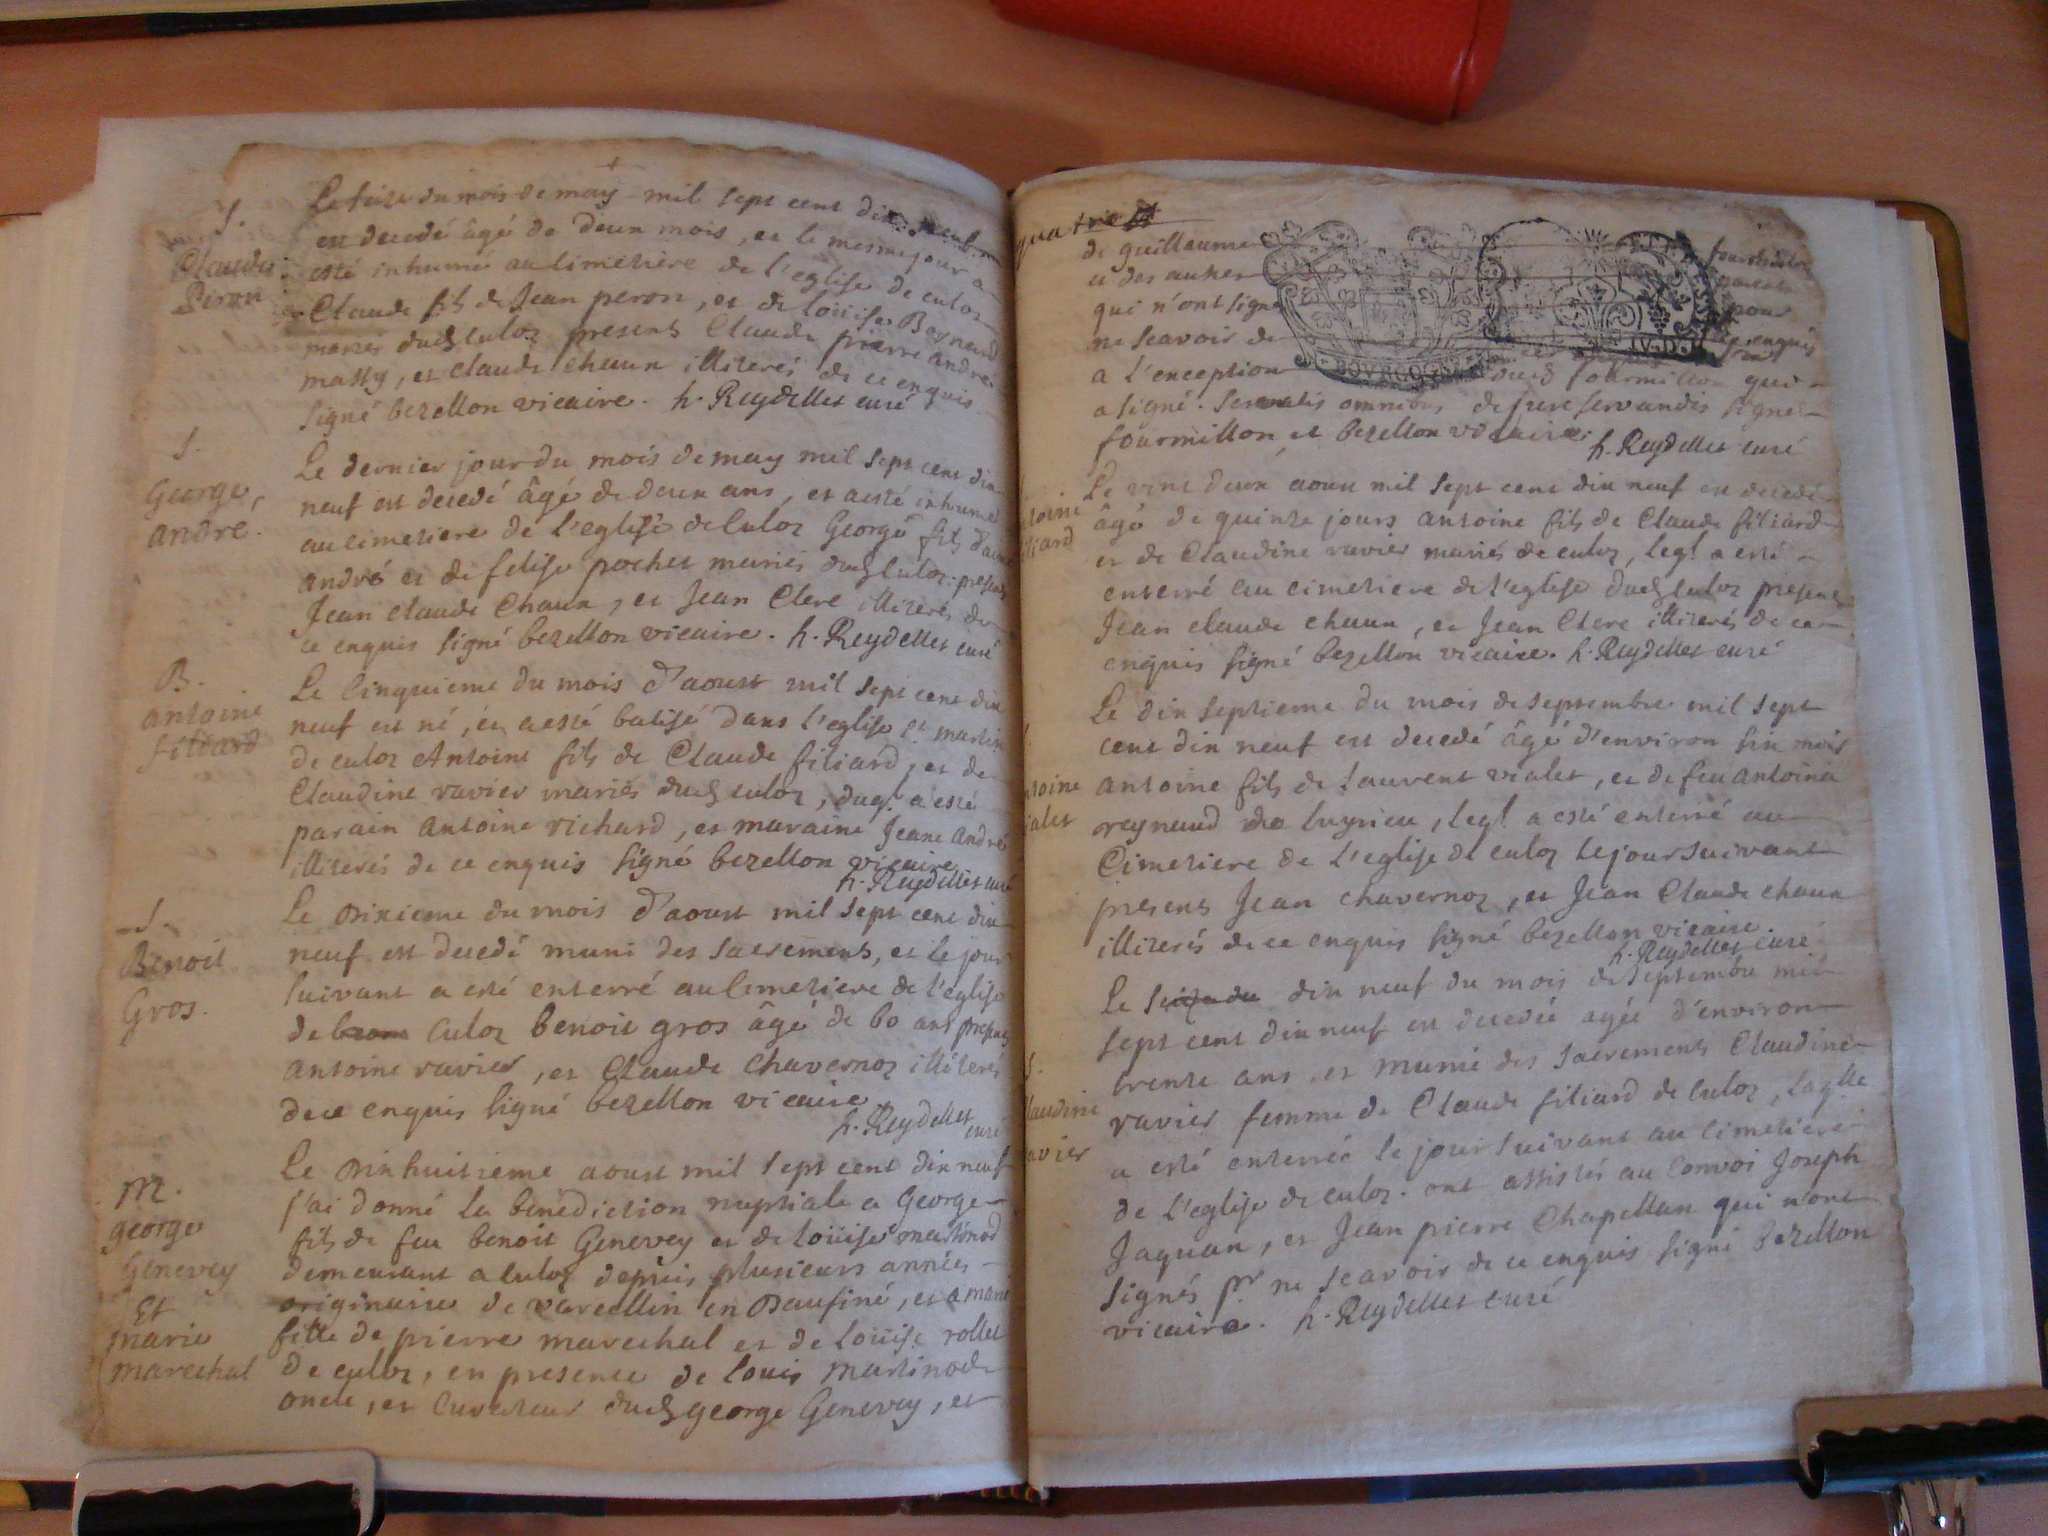 S.
Claude
Peron
Le seize du mois de may mil sept cent dix neuf
est decedé âgé de deux mois, et le mesme jour a
esté inhumé au cimetière de l'eglise de culoz
Claude fils de Jean peron, et de loüise Reynaud
mariés dud culoz presents Claude pierre andré
massy, et claude chaux illiterés de ce enquis
signé bezellon vicaire. h. Reydellet curé
S.
George
andre.
Le dernier jour du mois de may mil sept cent dix
neuf est decedé âgé de deux ans, et a esté inhumé
au cimetiere de l'eglise de Culoz George fils
andré et de felise pochet mariés dud Culoz. presents
Jean claude Chaux, et Jean Clere illiterés de
ce enquis signé bezellon vicaire. h. Reydellet curé
B.
antoine
filiard
Le Cinquieme du mois d'aoust mil sept cent dix
neuf est né, et a esté batisé dans l'eglise st martin
de culoz Antoine fils de Claude filiard, et de
Claudine ravier mariés dud culoz, duql a esté
parain antoine richard, et maraine Jeane André
illiterés de ce enquis signé bezellon vicaire
h. Reydellet curé
S.
Benoit
Gros.
Le Dixieme du mois d'aoust mil sept cent dix
neuf est decedé muni des sacrements, et le jour
suivant a esté enterré au Cimetiere de l'eglise
de Culoz benoit gros âgé de 60 ans presents
antoine ravier, et Claude Chavernoz illiterés
de ce enquis signé bezellon vicaire
h. Reydellet
curé
M.
george
Genevey
Et
marie
marechal
Le Dix huitieme aoust mil sept cent dix neuf
j'ai donné la benediction nuptiale a George
fils de feu benoit Genevey et de loüise martinod
demeurant a culoz depuis plusieurs années
originaire de varcellin en Daufiné, et a marie
fille de pierre marechal et de loüise rollet
de culoz, en presence de louis martinod
oncle, et Curateur dud george Genevey, et
quatre
de guillaume
et des autres
qui n'ont signé
ne scavoir de
a l'exception
BOURGOGNE
pour
enquis
dud fourmillon qui
a signé. servatis omnibus de jure servandis signé
fourmillon, et bezellon vicaire
h. Reydellet curé
Le vint deux aoust mil sept cent dix neuf est decedé
âgé de quinze jours antoine fils de Claude filiard
et de Claudine ravier mariés de culoz, leql a esté
enterré au cimetiere de l'eglise dud culoz presents
Jean claude chaux, et Jean Clere illiterés de ce
enquis signé bezellon vicaire. h. Reydellet curé
Le dix septieme du mois de septembre mil sept
cent dix neuf est decedé âgé d'environ six mois
antoine fils de laurent vialet, et de feu antoina
reynaud de luyrieu, leql a esté enterré au
Cimetiere de l'eglise de culoz le jour suivant
presents Jean chavernoz, et Jean Claude chaux
illiterés de ce enquis signé bezellon vicaire
h. Reydellet curé
Le dix neuf du mois de septembre mil
sept cent dix neuf est decedée agée d'environ
trente ans, et munie des sacrements Claudine
ravier femme de Claude filiard de Culoz, laqlle
a esté enterrée le jour suivant au cimetiere
de l'eglise de culoz. ont assistés au Convoi Joseph
Jaquan, et Jean pierre Chapellan qui n'ont
signés pr ne scavoir de ce enquis signé bezellon
vicaire. h. Reydellet curé